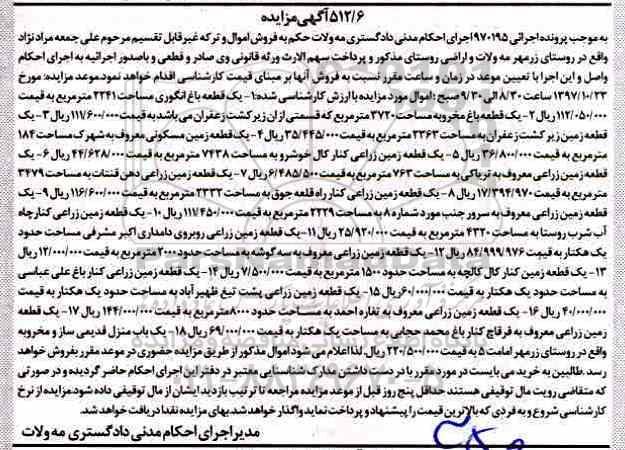 ۵۱۲/۶ آگهی مزایده
به موجب پرونده اجرائی ۹۷۰۱۹۵ اجرای احکام مدنی دادگستری مه ولات حکم به فروش اموال و ترکه غیر قابل تقسیم مرحوم علی جمعه مراد نژاد
واقع در روستای زرمهر مه ولات و اراضی روستای مذکور و پرداخت سهم الارث ورثه قانونی وی صادر و قطعی و باصدور اجرائیه به اجرای احکام
واصل و این اجرا با تعیین موعد در زمان و ساعت مقرر نسبت به فروش آنها بر مبنای قیمت کارشناسی اقدام خواهد نمود.موعد مزایده: مورخ
۱۳۹۷/۱۰/۲۳ ساعت ۸/۳۰ الی ۹/۳۰ صبح: اموال مورد مزایده با ارزش کارشناسی شده:۱- یک قطعه باغ انگوری مساحت ۲۲۴۱ مترمربع به قیمت
۱۱۲/۰۵۰/۰۰۰ ریال ۲- یک قطعه باغ مخروبه مساحت ۳۷۲۰ مترمربع که قسمتی از ان زیر کشت زعفران می باشد به قیمت ۱۱۱/۶۰۰/۰۰۰ ریال ۳- یک
قطعه زمین زیر کشت زعفران به مساحت ۲۳۶۳ مترمربع به قیمت ۳۵/۴۴۵/۰۰۰ ریال ۴- یک قطعه زمین مسکونی معروف به شهرک مساحت ۱۸۴
مترمربع به قیمت ۳۶/۸۰۰/۰۰۰ ریال ۵- یک قطعه زمین زراعی کنار کال خوشرو به مساحت ۷۴۳۸ مترمربع به قیمت ۴۴/۶۲۸/۰۰۰ ریال ۶- یک
قطعه زمین زراعی معروف به تریاکی به مساحت ۷۶۳ مترمربع به قیمت ۶/۴۸۵/۵۰۰ ریال ۷- یک قطعه زمین زراعی دهن قنتات به مساحت ۳۴۷۹
مترمربع به قیمت ۱۷/۳۹۴/۹۷۰ ریال ۸- یک قطعه زمین زراعی کنار راه قلعه جوق به مساحت ۲۳۳۲ مترمربع به قیمت ۱۱۶/۶۰۰/۰۰۰ ریال ۹- یک
قطعه زمین زراعی معروف به سرور جنب مورد شماره ۸ به مساحت ۲۲۲۹ مترمربع به قیمت ۱۱۱/۴۵۰/۰۰۰ ریال ۱۰- یک قطعه زمین زراعی کنار چاه
آب شرب روستا به مساحت ۴۳۲۰ مترمربع به قیمت ۲۵/۹۲۰/۰۰۰ ریال ۱۱- یک قطعه زمین زراعی روبروی دامداری اکبر مشرفی مساحت حدود
یک هکتار به قیمت ۸۴/۹۹۹/۹۷۶ ریال ۱۲- یک قطعه زمین زراعی معروف به سه گوشه به مساحت حدود ۲۰۰۰ مترمربع به قیمت ۱۲/۰۰۰/۰۰۰ ریال
۱۳- یک قطعه زمین کنار کال کالچه به مساحت حدود ۱۵۰۰ مترمربع به قیمت ۷/۵۰۰/۰۰۰ ریال ۱۴- یک قطعه زمین زراعی کنار باغ علی عباسی
به مساحت حدود یک هکتار به قیمت ۶۰/۰۰۰/۰۰۰ ریال ۱۵- یک قطعه زمین زراعی پشت تیغ ظهیر آباد به مساحت حدود یک هکتار به قیمت
۴۰/۰۰۰/۰۰۰ ریال ۱۶- یک قطعه زمین زراعی معروف به تغاره احمد به مساحت حدود ۸۰۰۰ مترمربع به قیمت ۱۴۴/۰۰۰/۰۰۰ ریال ۱۷- یک قطعه
زمین زراعی معروف به قرقاچ کنار باغ محمد حجابی به مساحت یک هکتار به قیمت ۶۹/۰۰۰/۰۰۰ ریال ۱۸- یک باب منزل قدیمی ساز و مخروبه
واقع در روستای زرمهر امامت ۵ به قیمت ۲۲۰/۵۰۰/۰۰۰ ریال. لذا اعلام می شود اموال مذکور از طریق مزایده حضوری در موعد مقرر بفروش خواهد
رسد .طالبین به خرید می بایست در مورد مقرر با در دست داشتن مدارک شناسایی معتبر در دفتر این اجرای احکام حاضر گردیده و در صورتی
که متقاضی رویت مال توقیفی هستند حداقل پنج روز قبل از موعد مزایده مراجعه تا ترتیب بازدید ایشان از مال توقیفی داده شود.مزایده از نرخ
کارشناسی شروع و به فردی که بالاترین قیمت را پیشنهاد و پرداخت نماید واگذار خواهد شد.بهای مزایده نقدا دریافت خواهد شد.
مدیر اجرای احکام مدنی دادگستری مه ولات